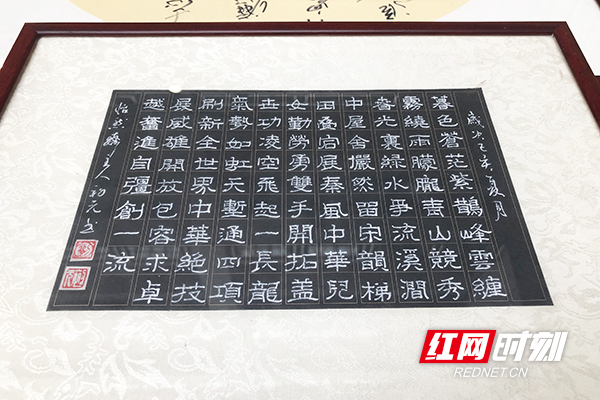 歲次己亥夏月
暮色蒼茫紫鵲峰雲纏
霧繞雨朦朧青山競秀
春光裏綠水爭流溪澗
中屋舍儼然留宋韻梯
田疊宕展秦風中華兒
女勤勞勇雙手開拓蓋
世功凌空飛起一長龍
氣勢如虹天塹通四項
刷新全世界中華絕技
展威雄開放包容求卓
越奮進自彊創一流
主人
红网时刻
REDNET.CN